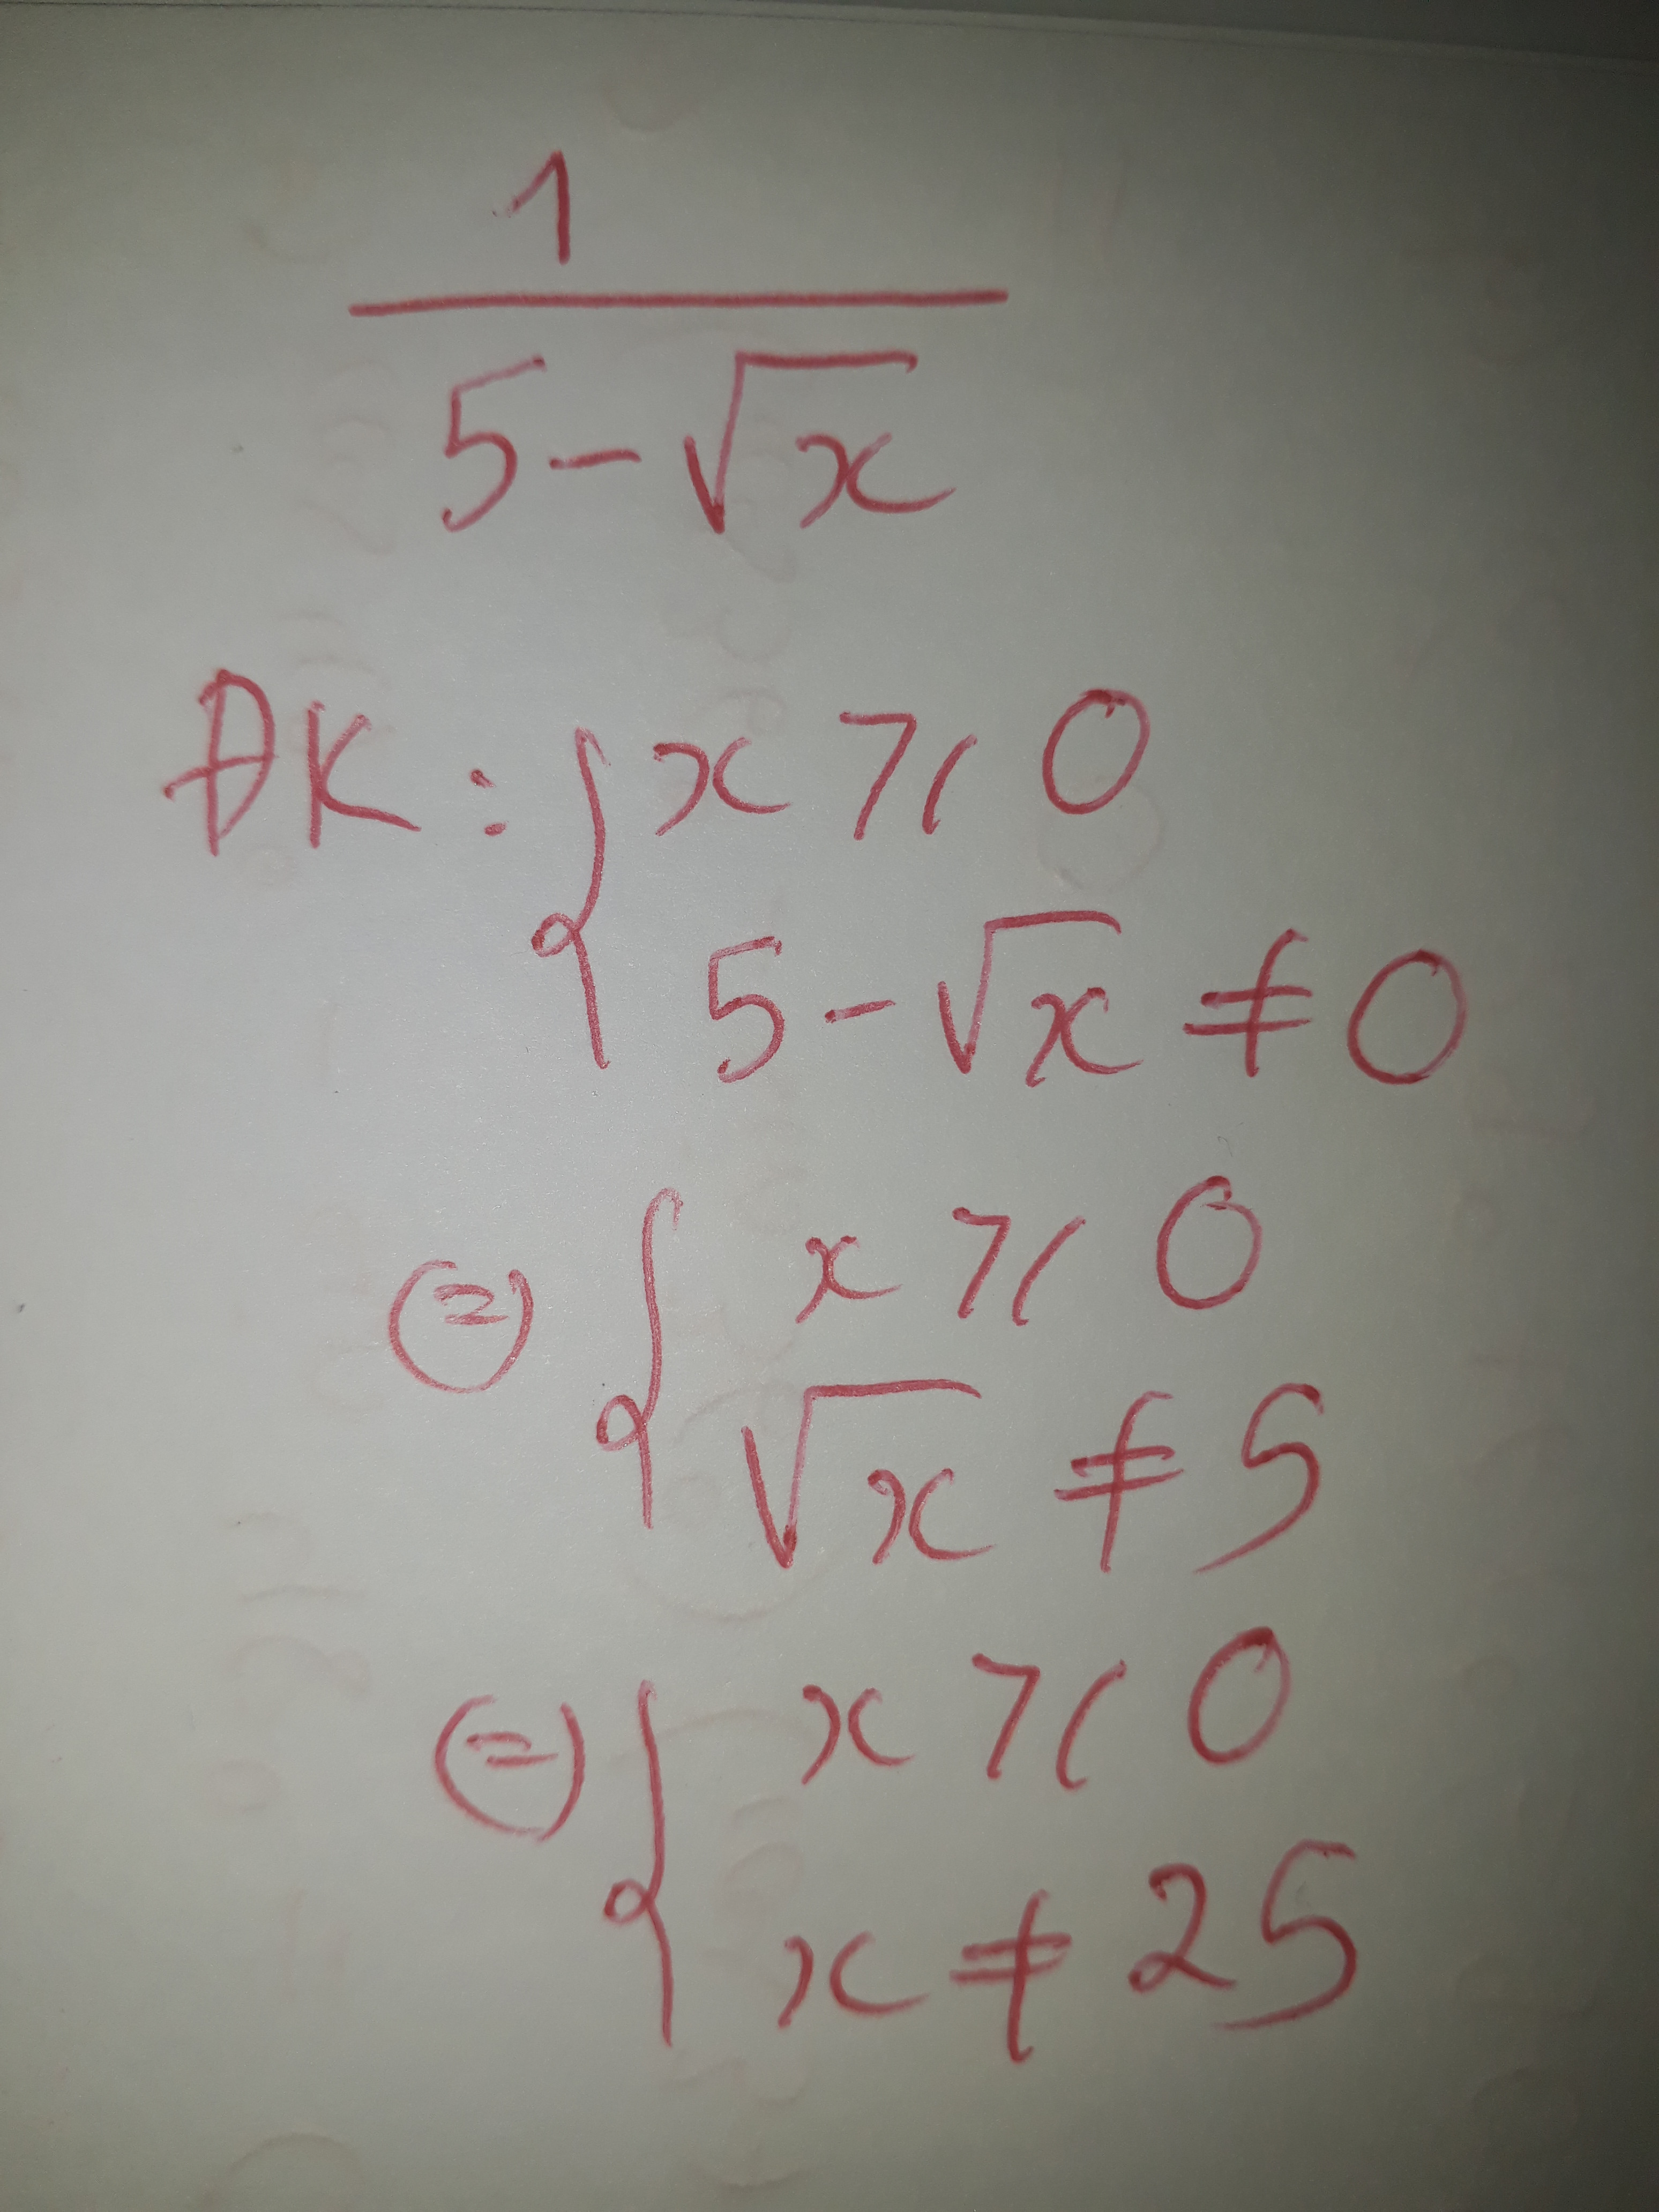 1
5 - √x
ĐK: { x ≥ 0
5 - √x ≠ 0
⇔ { x ≥ 0
√x ≠ 5
⇔ { x ≥ 0
x ≠ 25